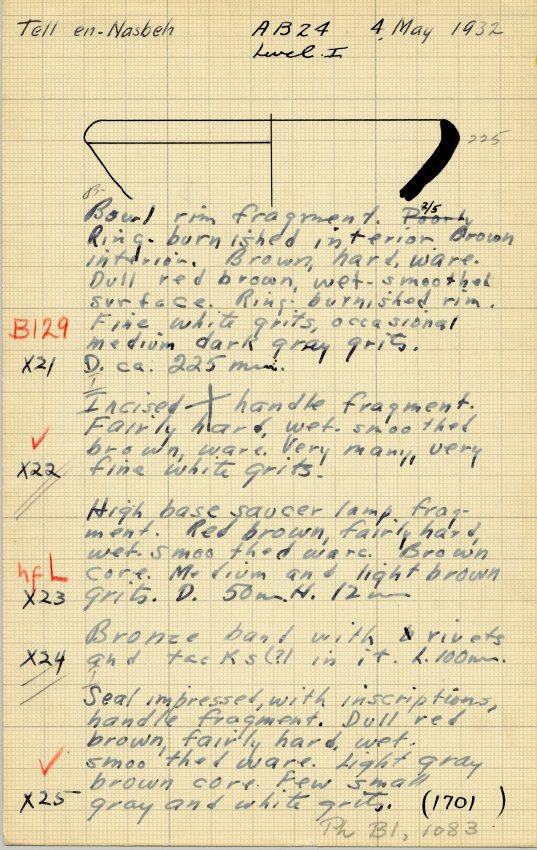 Tell en-Nasbeh AB24 4 May 1932
Level I
225
Bowl rim fragment. 2/5 Poorly
Ring-burnished interior. Brown
interior. Brown, hard, ware.
Dull red brown, wet-smoothed
surface. Ring-burnished rim.
B129 Fine white grits, occasional
medium dark gray grits.
X21 D. ca. 225 mm.
Incised handle fragment.
Fairly hard, wet-smoothed
brown, ware. Very many, very
X22 fine white grits.
High base saucer lamp frag-
ment. Red brown, fairly hard,
wet-smoothed ware. Brown
hfL core. Medium and light brown
X23 grits. D. 50m. H. 12m
Bronze band with rivets
X24 and tacks(?) in it. L. 100m.
Seal impressed, with inscriptions,
handle fragment. Dull red
brown, fairly hard, wet-
smoothed ware. Light gray
brown core. Few small
X25 gray and white grits. (1701)
Ph B1, 1083